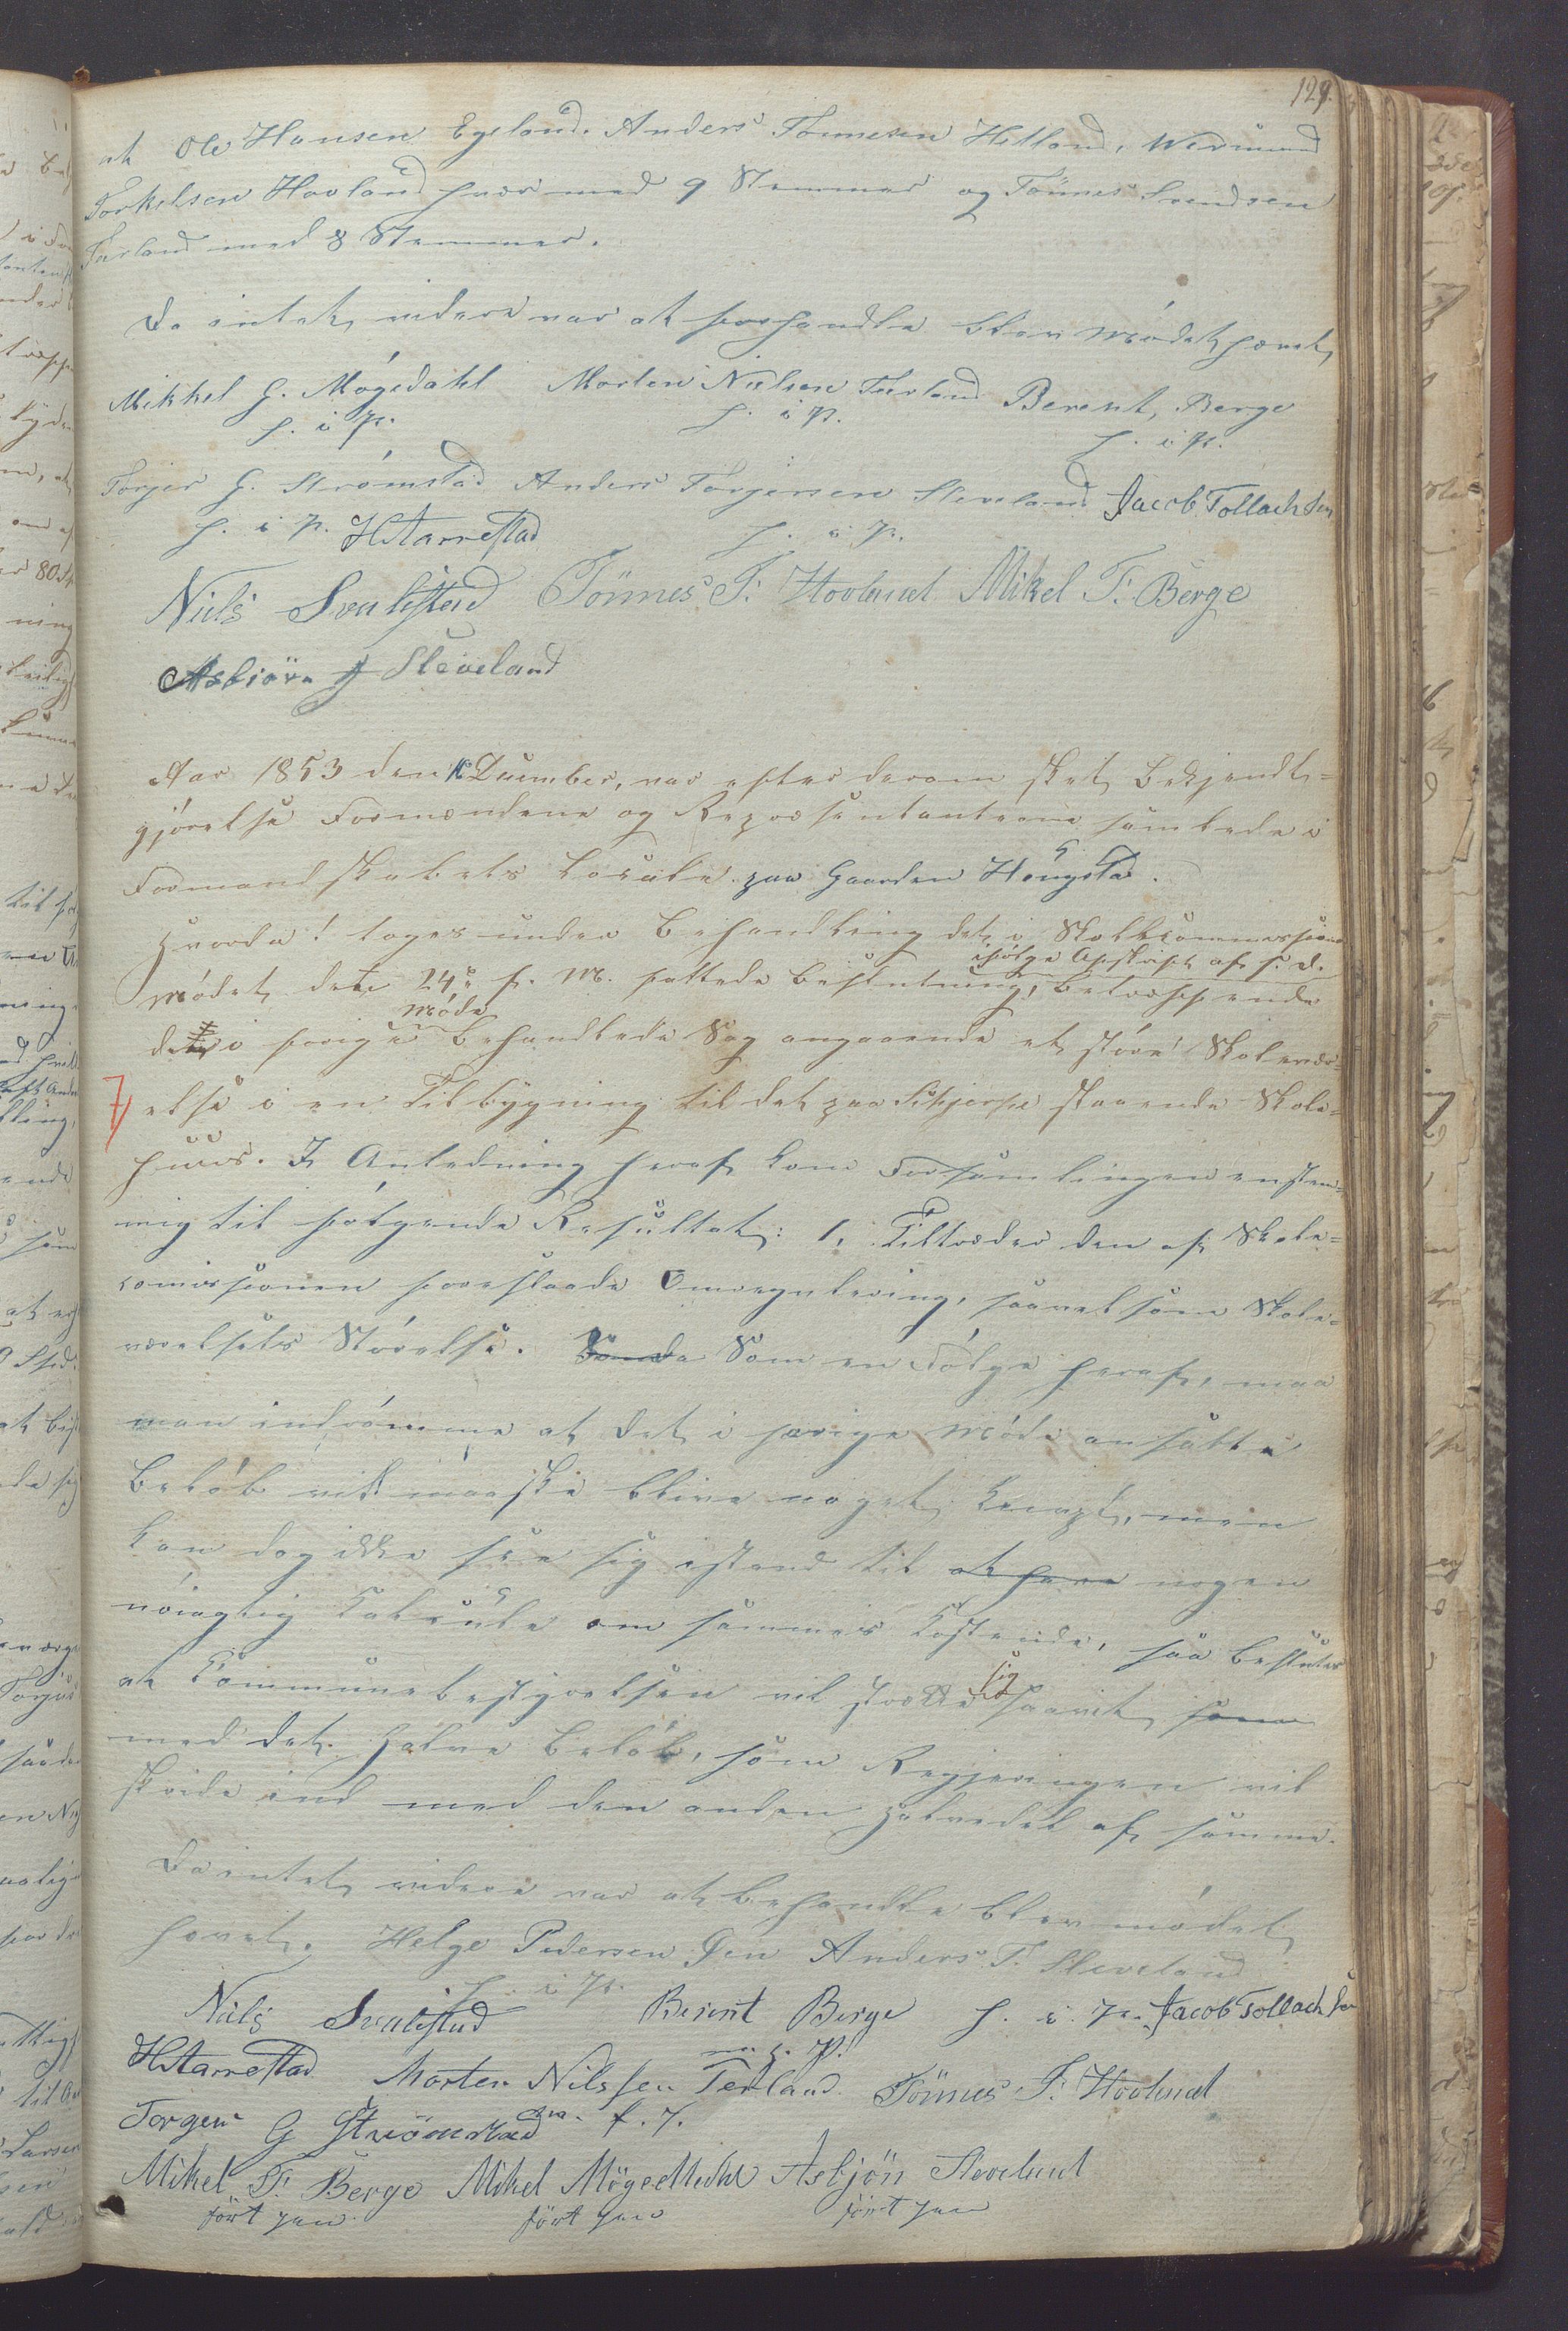 129.
at Ole Hansen Egeland, Anders Tønnesen Hetland, Wermund
Torkelsen Hovland hver med 9 Stemmer og Tønnes Svendsen
Terland med 8 Stemmer.
Da intet videre var at forhandle blev Mødet hævet,
Mikkel G. Møgedahl Morten Nielsen Terland Berent Berge
h. i p. h. i p. h. i p.
Torjer G. Strømstad Anders Torjersen Sleveland Jacob Tollachsen
h. i p. HTarrestad h. i p.
Nils Svalestad Tönnes T. Hovland Mikel T. Berge
Asbiörn Sleveland
Aar 1853 den December, var efter derom skeet Bekjendt=
gjørelse Formændene og Repræsentanterne samlede i
Formandskabets Locale paa Gaarden
Hvorda! toges under Behandling det i Skolecommissions
Mødet den 24de f. M. fattede Beslutning, ifølge Afskrift af s. d. betræffende
det i forige Møde Behandlede Sag angaaende et større Skolevær=
7)
else i en Tilbygning til det paa staaende Skole=
huus. I Anledning heraf kom Forsamlingen enstem=
mig til følgende Resultat: 1, Tiltrædes den af Skole=
comissionen foreslaade Omregulering, saavelsom Skole=
værelsets Størelse. Som en Følge heraf, maa
man indrømme at det i forige Møde ansatte
Beløb vil maaske blive noget knapt, men
kan dog ikke see sig istand til at have nogen
nøiagtig Calcule om sammes Kostende, saa besluttes
at Communebestyrelsen vil strække sig saavit som
med det halve Beløb, som Regjeringen vil
skride ind med den anden Halvedel af samme.
Da intet videre var at behandle blev mødet
hævet. Helge Pedersen Anders T. Sleveland
h. i p.
Nils Svalestad Berent Berge h. i p. Jacob Tollachsen
m. f. P.
HTarrestad Morten Nilssen Terland Tönnes T. Hovland
Torger G Strømstad m. f. P.
Mikel T. Berge Mikel Møgedahl Asbjön Sleveland
ført pen ført pen ført pen